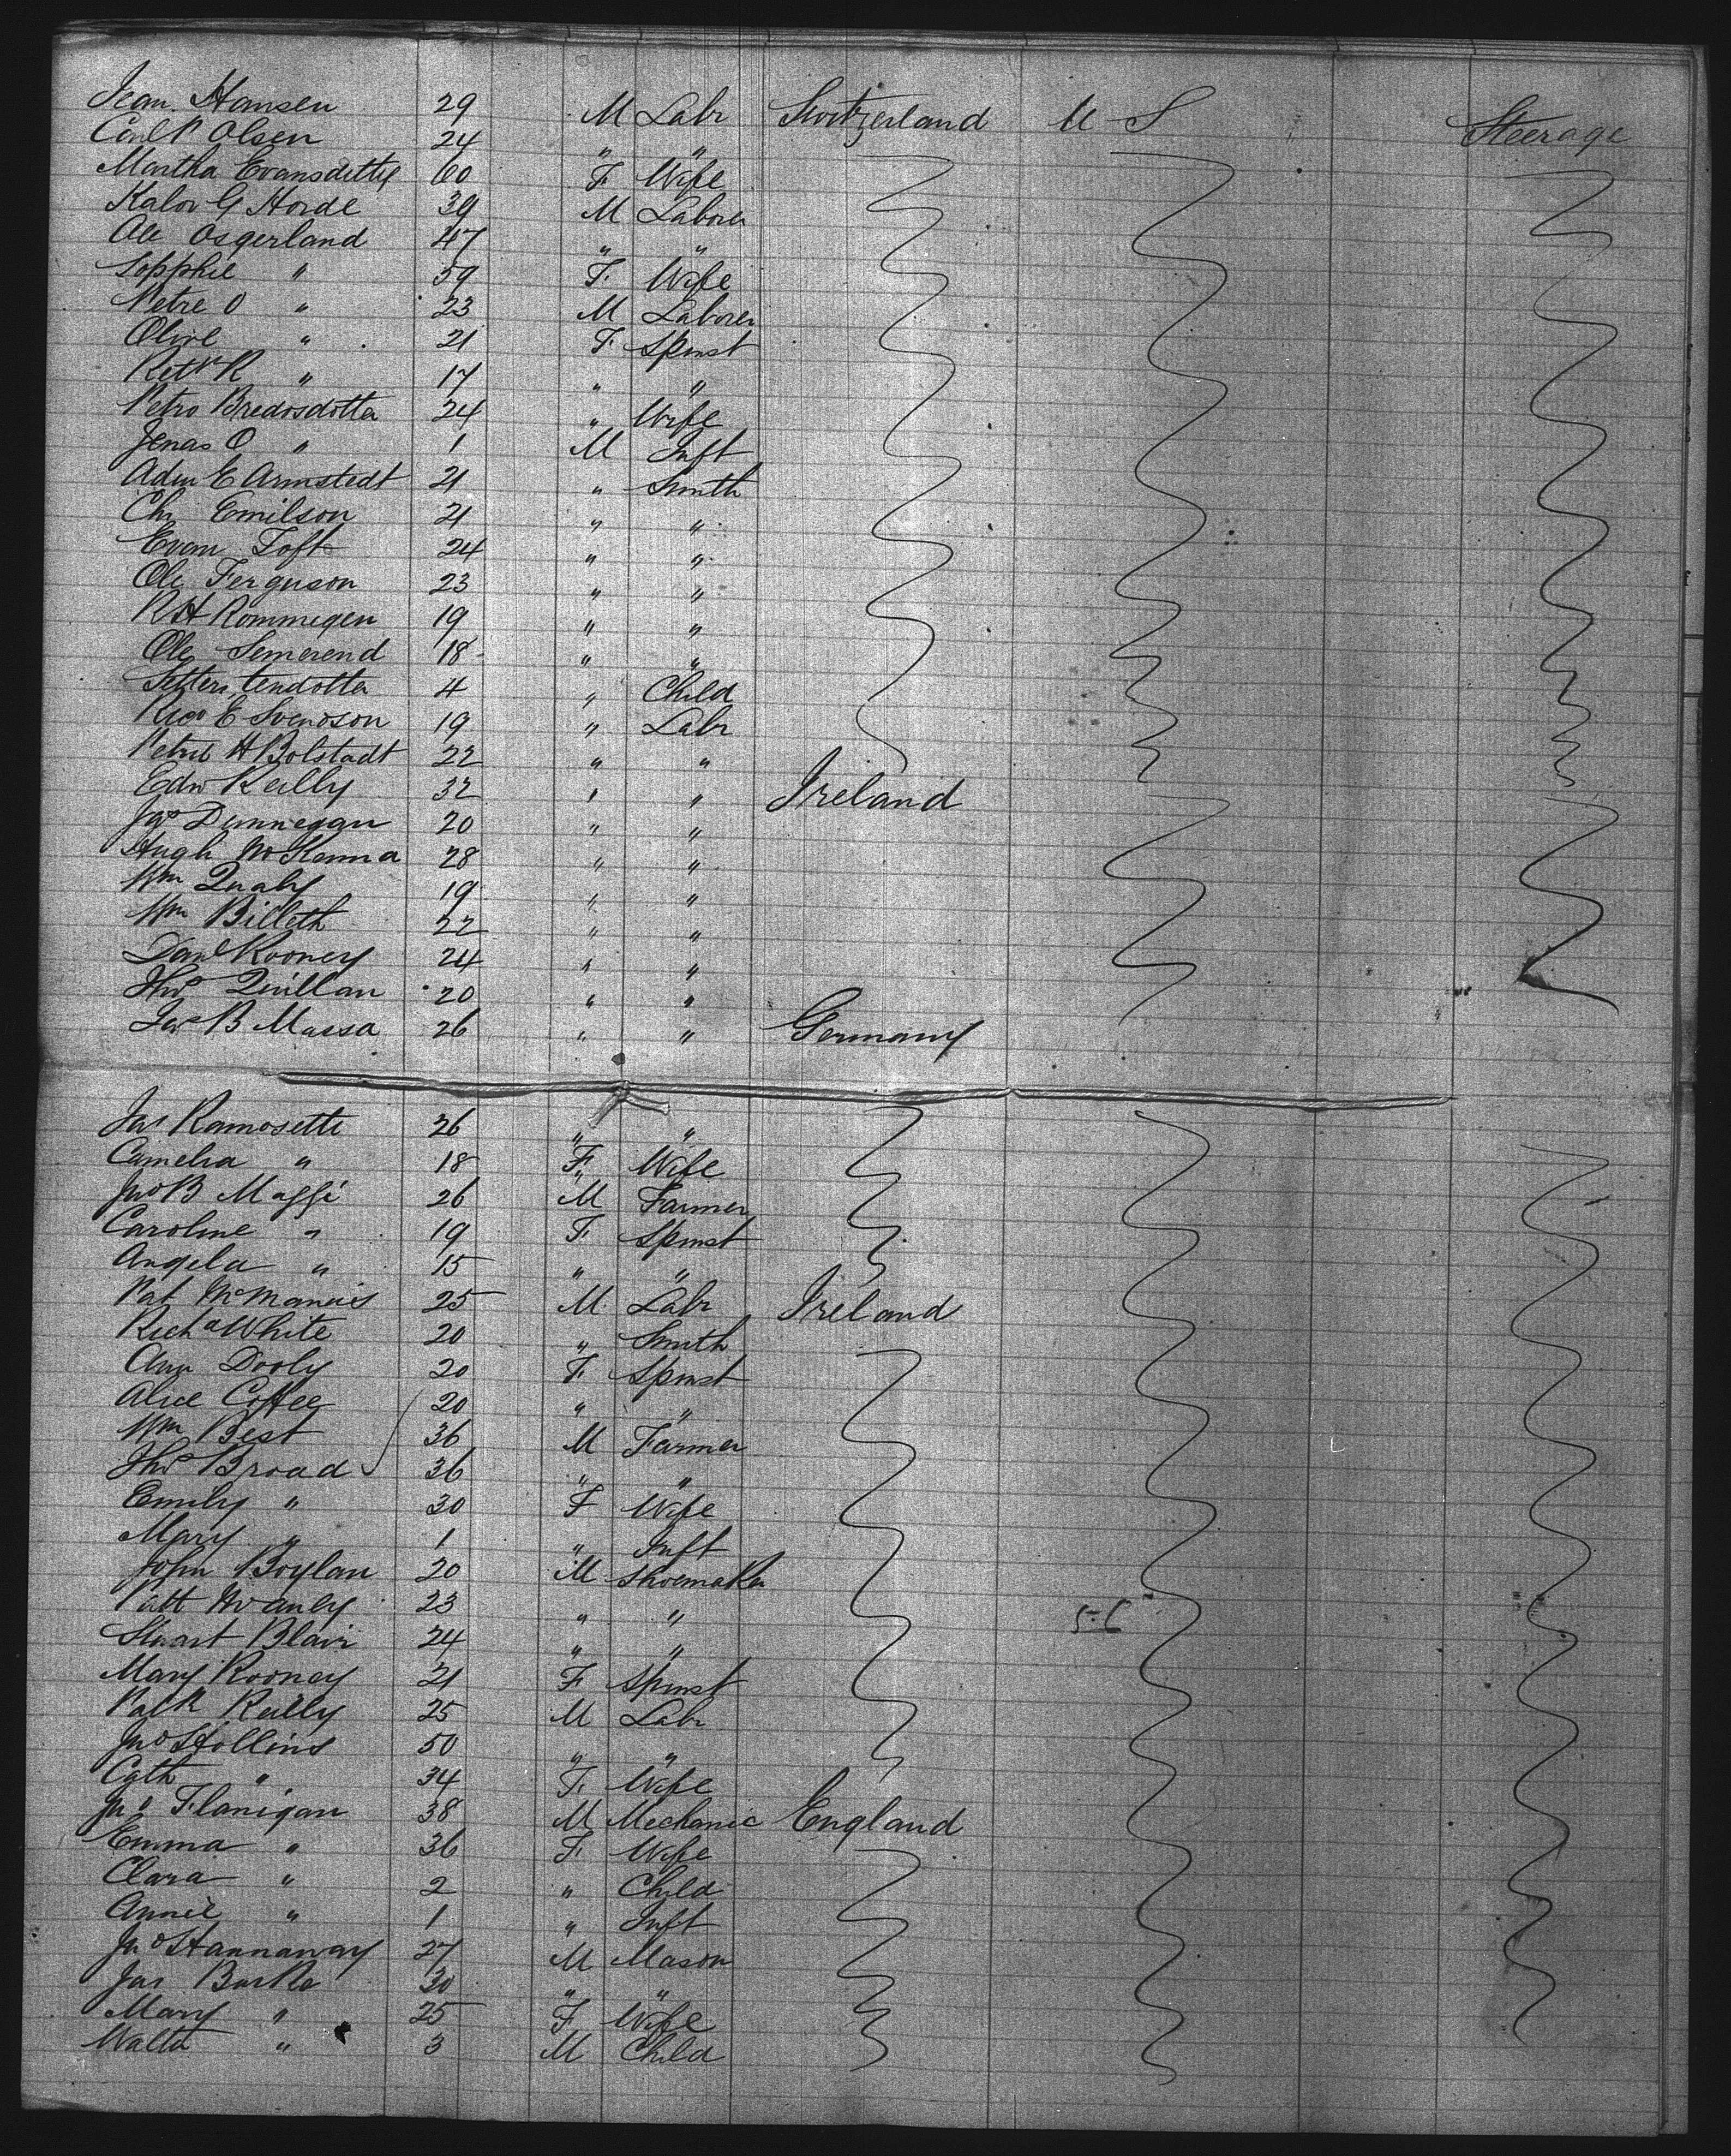 Jean Hansen 29 M Labr Switzerland U S Steerage
Carl P Olsen 24 " "
Martha Evansdetty 60 F Wife
Kalov G Horde 39 M Laborer
Ole Osgerland 47 " "
Sopphie " 59 F. Wife
Petre O " 23 M Laborer
Olive " 21 F Spinst
" 17 " "
Petro Bredosdotter 24 " Wife
Jenas O " 1 M Inft
Adm E Armstedt 21 " Smith
Chr Emilson 21 " "
Even Toft 24 " "
Ole Ferguson 23 " "
R H Rommegen 19 " "
Ole Semerend 18 " "
4 " Child
E Svenoson 19 " Labr
Petrus H Bolstadt 22 " "
Edw Reilly 32 " " Ireland
Jas Dunnegan 20 " "
Hugh McKenna 28 " "
Wm Qualy 19 " "
Wm Billeth 22 " "
Danl Rooney 24 " "
Thos Quillan 20 " "
B Massa 26 " " Germany
Jas Ramosette 26 " "
Camelia " 18 F. Wife
Jno B Maffi 26 M Farmer
Caroline " 19 F. Spinst
Angela " 15 " "
Pat McManus 25 M Labr Ireland
Richd White 20 " Smith
Ann Dooly 20 F. Spinst
Alice Coffee 20 " "
Wm Best 36 M Farmer
Thos Broad 36 " "
Emily " 30 F Wife
Mary " 1 " Inft
John Boylan 20 M Shoemaker
Patt 23 " " 56
Stuart Blair 24 " "
Mary Rooney 21 F Spinst
Patk Reilly 25 M Labr
Jno Hollins 50 " "
Cath " 34 F. Wife
Jno Flanigan 38 M Mechanic England
Emma " 36 F. Wife
Clara " 2 " Child
Annie " 1 " Inft
Jno Hannaway 27 M Mason
Jas Burke 30 " "
Mary " 25 F Wife
Walter " 3 M Child